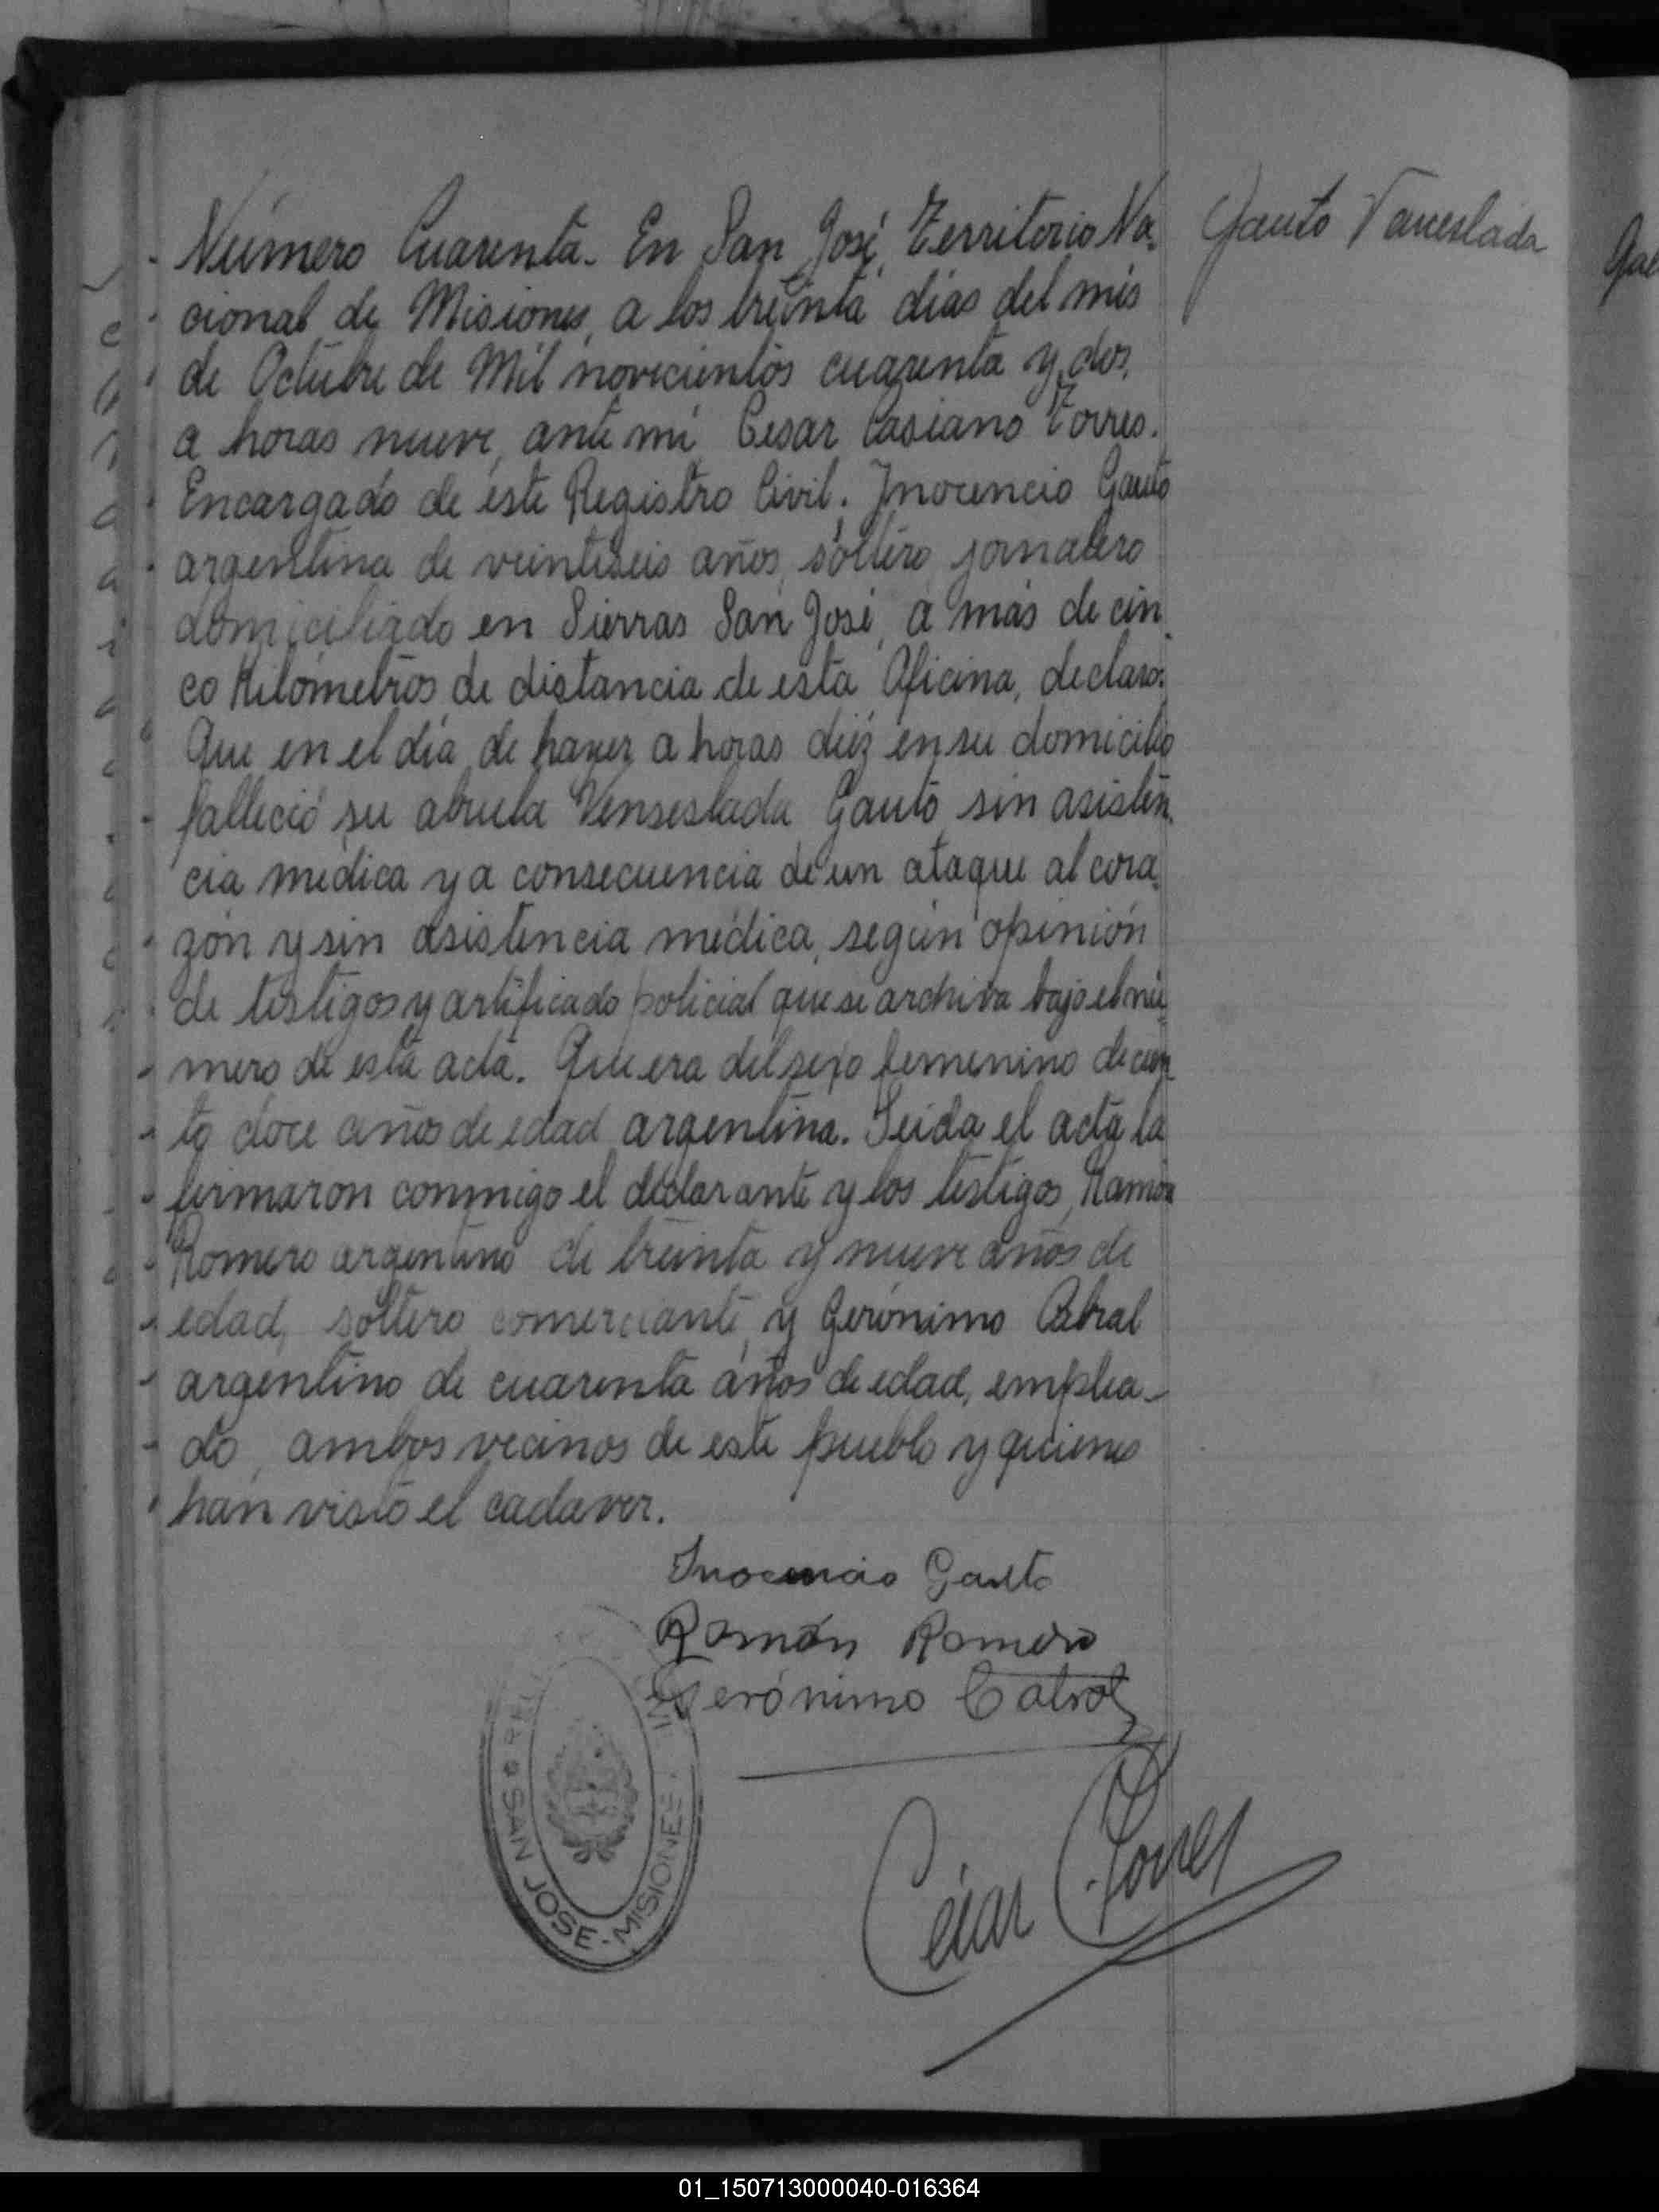 Número Cuarenta. En San José, Territorio Na-
cional de Misiones, a los treinta días del mes
de Octubre de Mil novecientos cuarenta y dos,
a horas nueve, ante mí Cesar Casiano Torres.
Encargado de este Registro Civil; Inocencio Gauto
argentina de veintiseis años, soltero, jornalero
domiciliado en Sierras San José, a más de cin-
co Kilómetros de distancia de esta Oficina, declaro:
Que en el día de hayer a horas diéz en su domicilio
falleció su abuela Venseslada Gauto sin asisten-
cia médica y a consecuencia de un ataque al cora-
zón y sin asistencia médica, según opinión
de testigos y artificado policial que se archiva bajo el nú-
mero de esta acta. Que era del sexo femenino de cien-
to doce años de edad argentina. Leida el acta la
firmaron conmigo el declarante y los testigos, Ramón
Romero argentino de treinta y nueve años de
edad, soltero comerciante, y Gerónimo Cabral
argentino de cuarenta años de edad, emplea-
do, ambos vecinos de este pueblo y quienes
han visto el cadaver.
Gauto Vaneslada
Inocencio Gauto
Ramón Romero
Gerónimo Cabral
César Torres
SAN JOSE - MISIONES
01_150713000040-016364